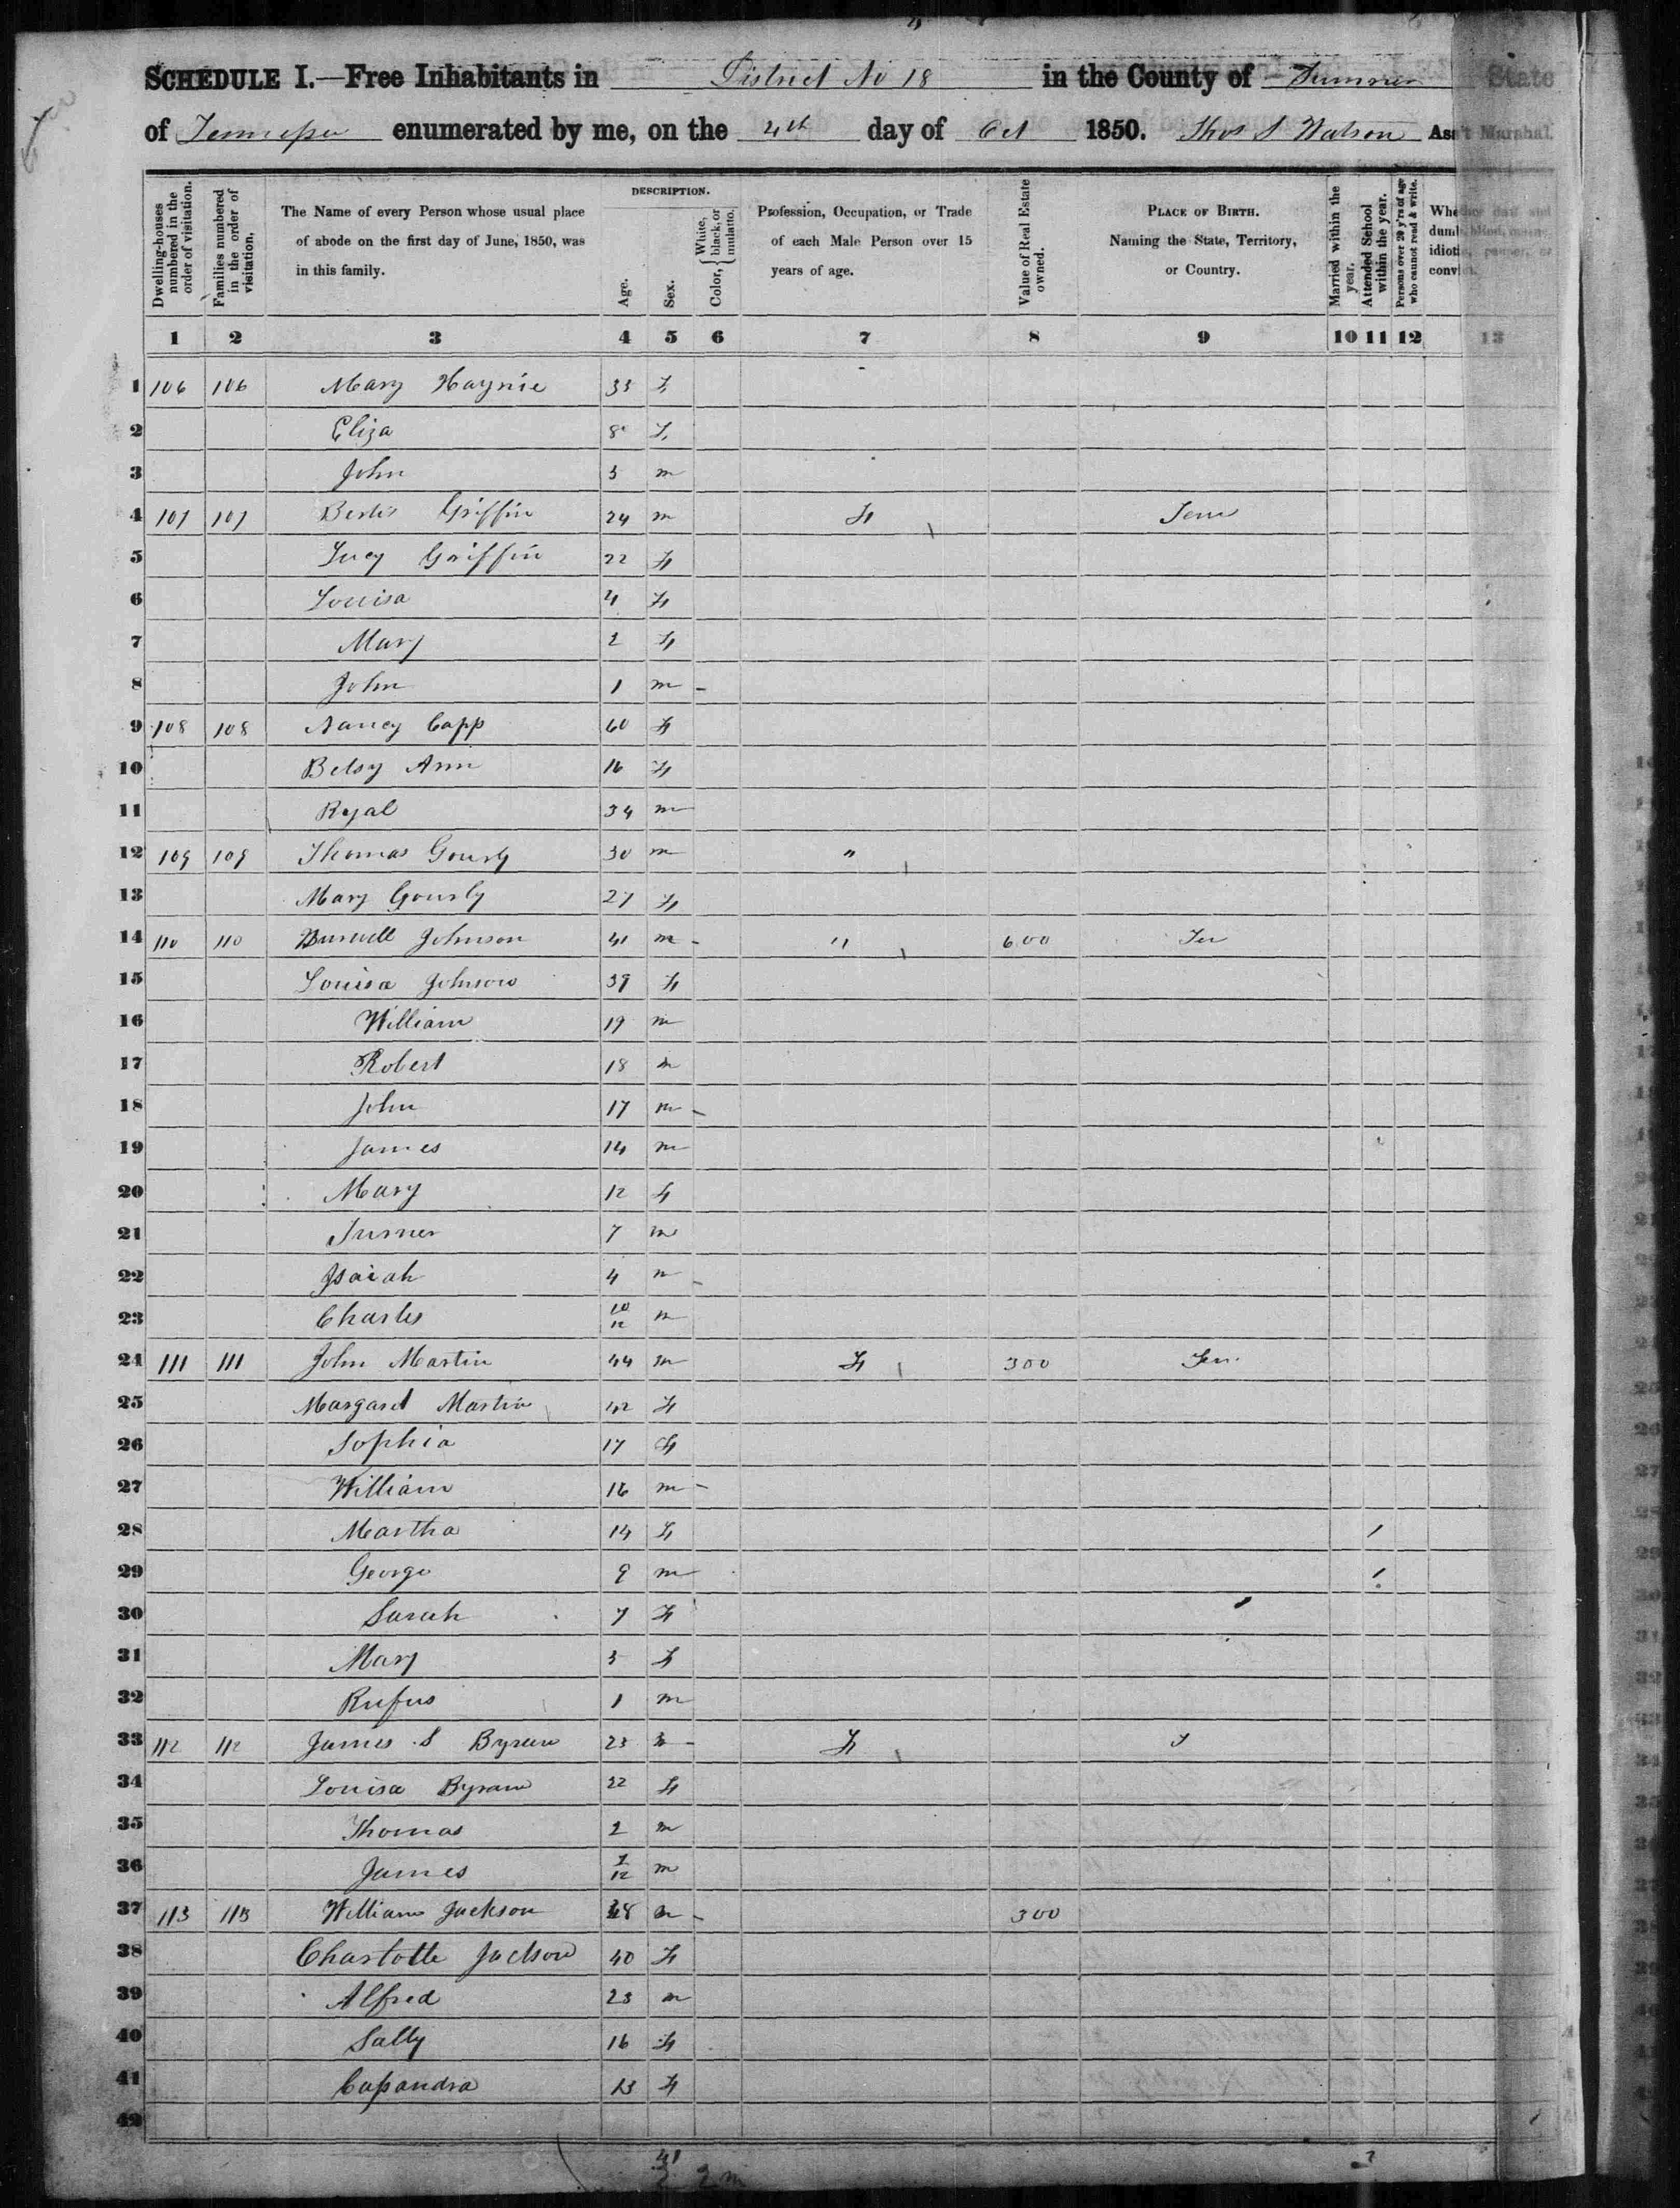 SCHEDULE I.—Free Inhabitants in District No 18 in the County of Sumner State
of Tennessee enumerated by me, on the 4th day of Oct 1850. Thos S Watson Ass't Marshal.
Dwelling-houses numbered in the order of visitation.
Families numbered in the order of visitation.
The Name of every Person whose usual place of abode on the first day of June, 1850, was in this family.
DESCRIPTION.
Age.
Sex.
Color, { White, black, or mulatto.
Profession, Occupation, or Trade of each Male Person over 15 years of age.
Value of Real Estate owned.
PLACE OF BIRTH. Naming the State, Territory, or Country.
Married within the year.
Attended School within the year.
Persons over 20 y'rs of age who cannot read & write.
Whether deaf and dumb, blind, insane, idiotic, pauper, or convict.
1 2 3 4 5 6 7 8 9 10 11 12 13
1 106 106 Mary Haynie 33 F
2 Eliza 8 F
3 John 3 m
4 107 107 Griffin 24 m F Tenn
5 Lucy Griffin 22 F
6 Louisa 4 F
7 Mary 2 F
8 John 1 m -
9 108 108 Nancy Capp 60 F
10 Betsy Ann 16 F
11 Ryal 34 m
12 109 109 Thomas Gourly 30 m "
13 Mary Gourly 27 F
14 110 110 Burwell Johnson 41 m - " 600 Ten
15 Louisa Johnson 39 F
16 William 19 m
17 Robert 18 m
18 John 17 m -
19 James 14 m
20 Mary 12 F
21 Turner 7 m
22 Isaiah 4 m -
23 Charles 10/12 m
24 111 111 John Martin 44 m F 300 Ten
25 Margaret Martin 42 F
26 Sophia 17 F
27 William 16 m -
28 Martha 14 F /
29 George 9 m /
30 Sarah 7 F
31 Mary 3 F
32 Rufus 1 m
33 112 112 James S Byram 23 m - F T
34 Louisa Byram 22 F
35 Thomas 2 m
36 James /12 m
37 113 113 William Jackson 48 m - 300
38 Charlotte Jackson 40 F
39 Alfred 23 m
40 Sally 16 F
41 Cassandra 13 F
42
41
2